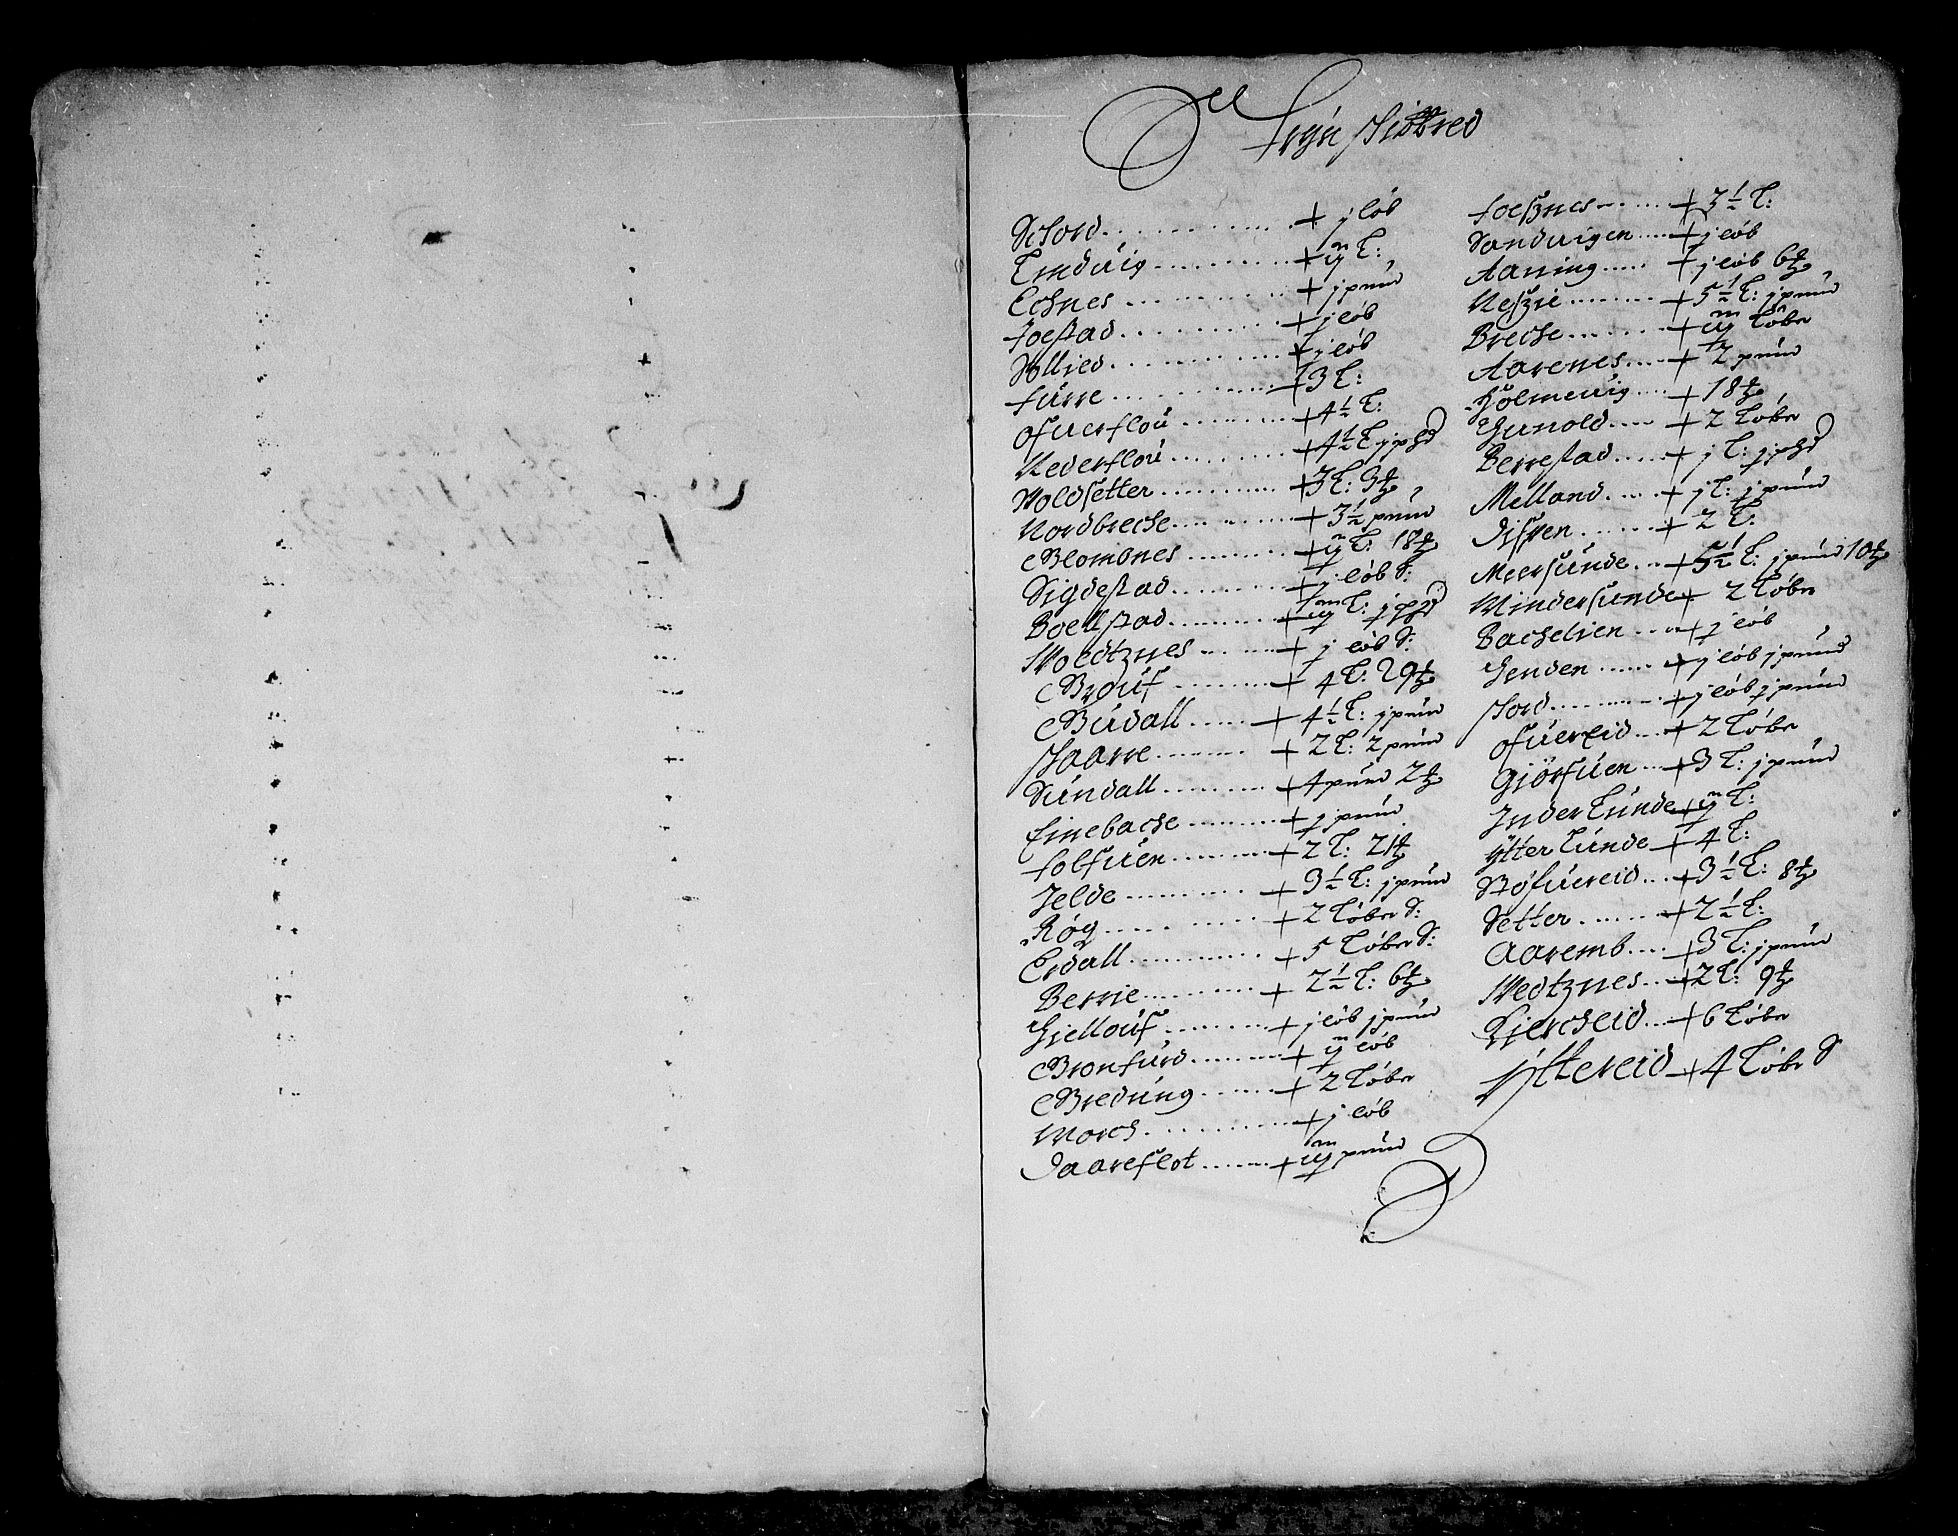 Stryn Skibbred
Schord + j løb
Tindvig + ij L:
Echnes + j pund
Foestad + j løb
Sollied + j løb
Furre + 3 L:
Ofuerflou + 4½ L:
Nederflou + 4½ L j phd
Woldsetter + 3 L: 9 ℔
Nordbreche + 3½ pund
Blombnes + ij L: 18 ℔
Sigdestad + j løb S:
Boelstad + iij L: j phd
Woldtznes + j løb S:
Brouf + 4 L: 29 ℔
Budall + 4½ L: j pund
Skaarre + 2 L: 2 pund
Sundall + 4 pund 2 ℔
Finebache + j pund
Folfuen + 2 L: 21 ℔
Jelde + 3½ L: j pund
Røg + 2 Løber S:
Erdall + 5 Løber S:
Berrie + 2½ L: 6 ℔
Gielloúf + j løb j pund
Bronfurd + ij løb
Breding + 2 Løber
Morch + j løb
Daareflot + iij pund
Foesznes + 3½ L:
Sandvigen + j løb
Aaning + j løb 6 ℔
Neszie + 5½ L: j pund
Breche + iij Løber
Aarenes + 2 pund
Holmevig + 18 ℔
Gunold + 2 Løber
Berrestad + j L: j phd
Melland + j L: j pund
Dispen + 2 L:
Meersunde + 5½ L: j pund 10 ℔
Mindersunde + 2 Løber
Bachelien + j løb
Henden + j løb j pund
Hord + j løb j pund
Ofuereid + 2 Løber
Giørfuen + 3 L: j pund
Inder Tunde + ij L:
Ytter Tunde + 4 L:
Støfuereid + 3½ L: 8 ℔
Setter + 2½ L:
Aaremb + 3 L: j pund
Nedtznes + 2 L: 9 ℔
Kiercheid + 6 Løber
Yttereid + 4 Løber S